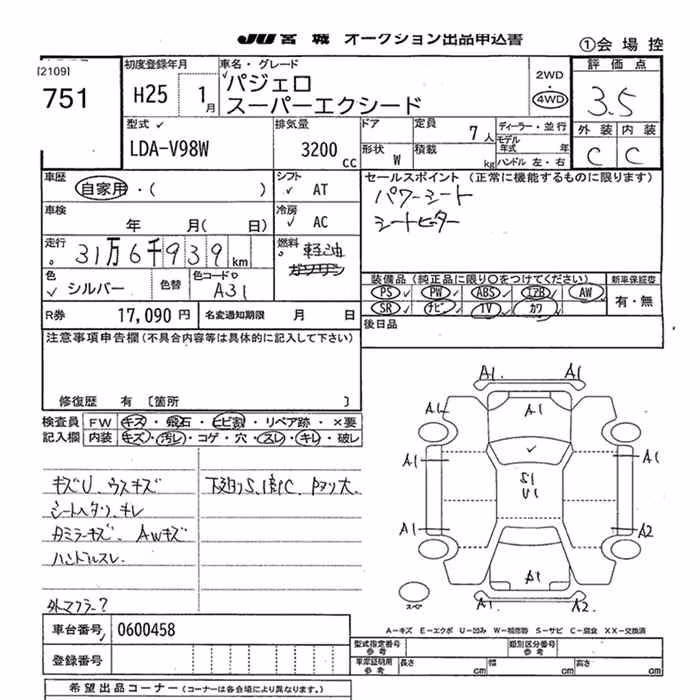 JU 宮城 オークション出品申込書
①会場控
[2109]
751
初度登録年月
H25 1月
車名・グレード
パジェロ
スーパーエクシード
2WD
・
4WD
評価点
3.5
外装 内装
C C
型式
LDA-V98W
排気量
3200cc
ドア
形状 W
定員 7人
積載 kg
ディーラー・並行
モデル年式 年
ハンドル 左・右
車歴
自家用・( )
シフト
AT
セールスポイント (正常に機能するものに限ります)
パワーシート
シートヒーター
車検
年 月( 日)
冷房
AC
走行
31万6千939km
燃料
軽油
ガソリン
色
シルバー
色替
色コードNo
A31
装備品 (純正品に限り○をつけてください)
PS PW ABS エアB AW
SR ナビ TV カワ
新車保証書
有・無
R券 17,090円
名変通知期限 月 日
後日品
注意事項申告欄(不具合内容等は具体的に記入して下さい)
修復歴 有 〔箇所 〕
検査員記入欄
FW キズ・飛石・ヒビ割・リペア跡・×要
内装 キズ・汚レ・コゲ・穴・スレ・キレ・破レ
キズU、ウスキズ
シートヘタリ、キレ
AWキズ
ハンドルスレ
外マフラー?
A1 A1
A1 A1 A1
A1 A1
S1
U1
A1 A2
A1
A1 A2
スペア
A-キズ E-エクボ U-凹み W-補修跡 S-サビ C-腐食 XX-交換済
車台番号 0600458
登録番号
型式指定番号 参考
類別区分番号 参考
車庫証明用 参考 長さ cm 幅 cm 高さ cm
希望出品コーナー (コーナーは各会場により異なります。)